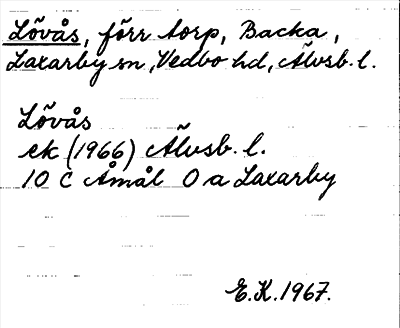 Lövås, förr torp, Backa,
Laxarby sn, Vedbo hd, Älvsb. l.
Lövås
ek (1966) Älvsb. l.
10 C Åmål O a Laxarby
E.K. 1967.